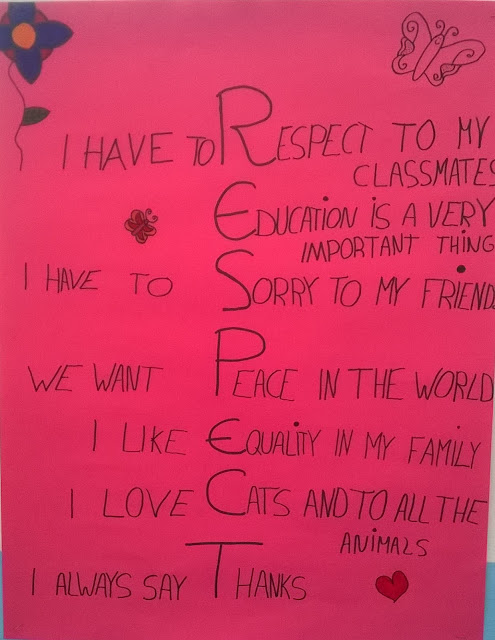 I HAVE TO RESPECT TO MY
CLASSMATES
EDUCATION IS A VERY
IMPORTANT THING
I HAVE TO SORRY TO MY FRIENDS
WE WANT PEACE IN THE WORLD
I LIKE EQUALITY IN MY FAMILY
I LOVE CATS AND TO ALL THE
ANIMALS
I ALWAYS SAY THANKS